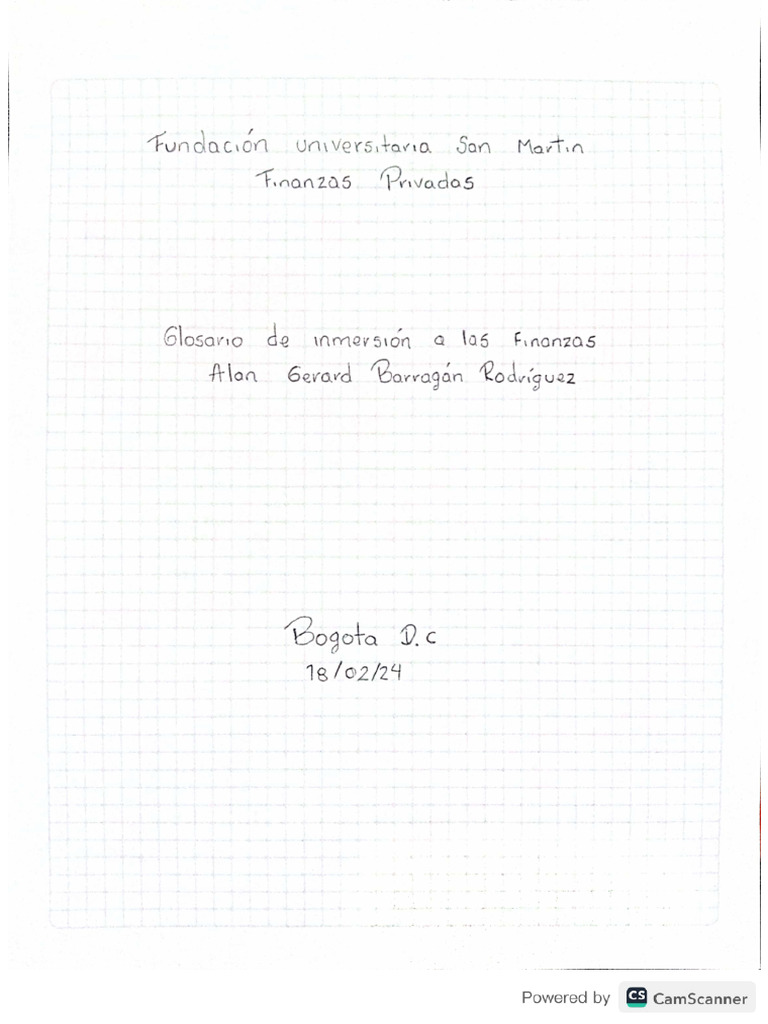 Fundación universitaria San Martin
Finanzas Privadas
Glosario de inmersión a las Finanzas
Alan Gerard Barragán Rodríguez
Bogota D.C
18/02/24
Powered by CS CamScanner